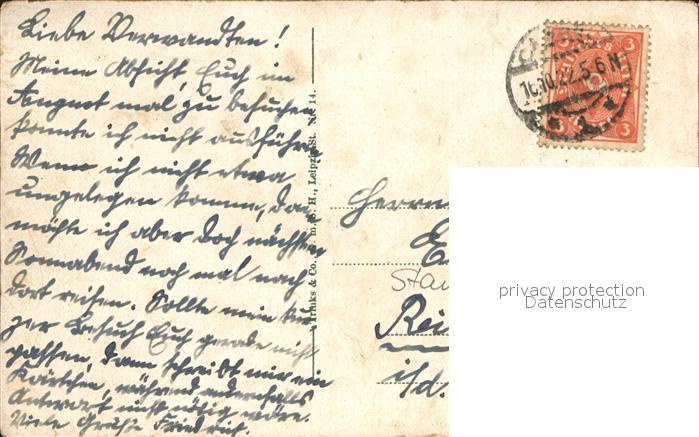 Liebe Verwandten!
Meine Absicht, Euch im
August mal zu besuchen
konnte ich nicht ausführen.
Wenn ich nicht etwa
ungelegen komme, dann
möchte ich aber doch nächsten
Sonnabend noch mal nach
dort reisen. Sollte mein kur
zer Besuch Euch gerade nicht
passen, dann schreibt mir ein
Kärtchen, während andernfalls
Antwort nicht nötig wäre.
Viele Grüße Friedrich.
Trinks & Co. G. m. b. H., Leipzig
St. Nr. 14.
16.10.22.5-6N
3 3
3 3
Herrn
Stau
Rei
i/Sd.
privacy protection
Datenschutz